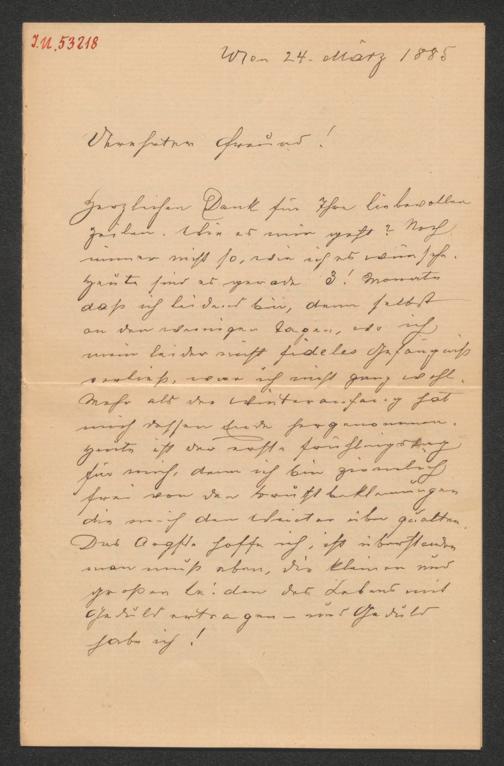 J.N. 53218
Wien 24. März 1885
Verehrter Freund!
Herzlichen Dank für Ihre liebevollen
Zeilen. Wie es mir geht? Noch
immer nicht so, wie ich es wünsche.
Heute sind es gerade 3! Monate
daß ich leidend bin, denn selbst
an den wenigen Tagen, wo ich
mein leider nicht fideles Gefängniß
verließ, war ich nicht ganz wohl.
Mehr als der Winteranfang hat
mich dessen Ende hergenommen.
Heute ist der erste Frühlingstag
für mich, denn ich bin ziemlich
frei von den Brustbeklemmungen
die mich den Winter über quälten.
Das Aergste hoffe ich, ist überstanden
man muß eben, die kleinen und
großen Leiden des Lebens mit
Geduld ertragen – und Geduld
habe ich!